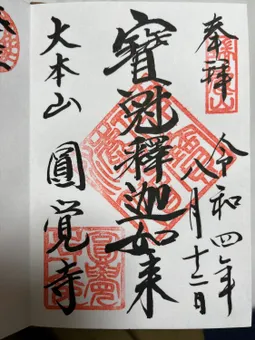 奉拝
令和四年八月十二日
寶冠釋迦如来
大本山 圓覚寺